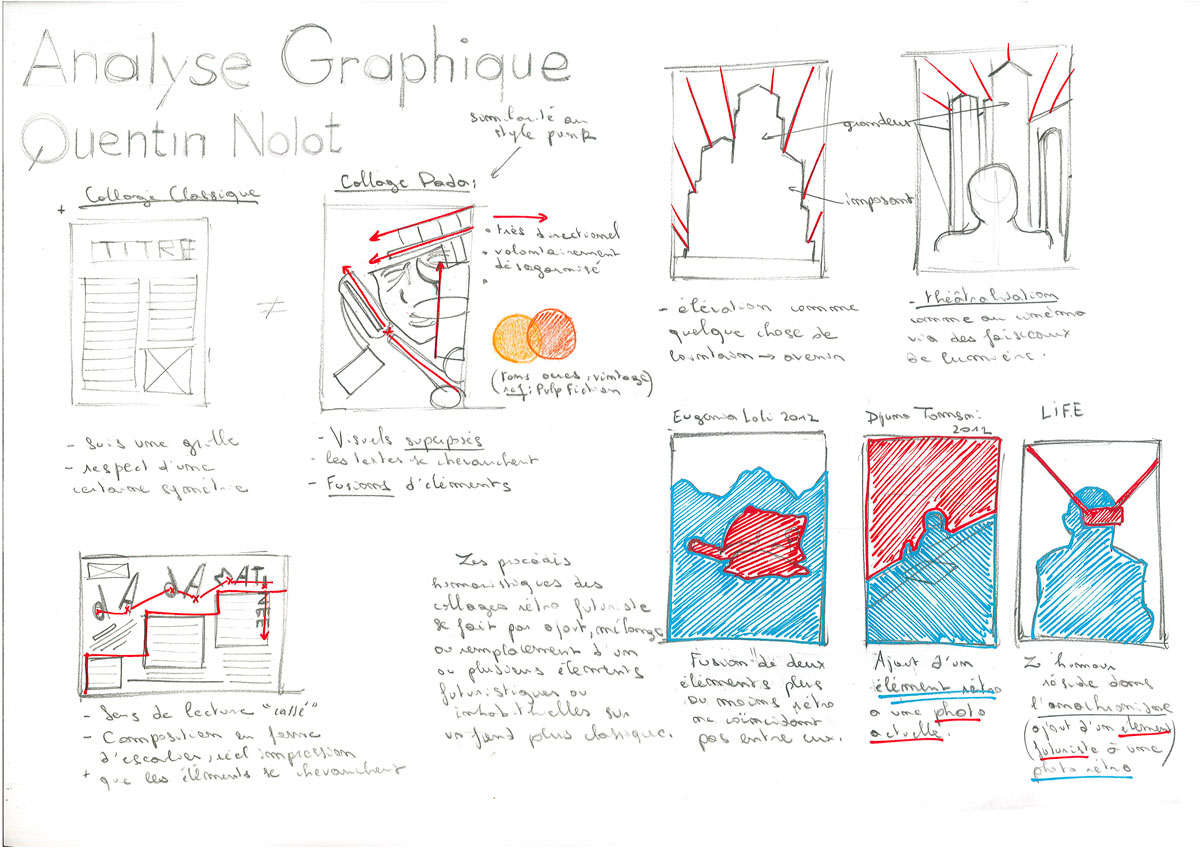 Analyse Graphique
Quentin Nolot
similarité au
style punk
Collage Classique
TITRE
- suis une grille
- respect d'une
certaine symétrie
≠
Collage Dada:
• très directionel
• volontairement
désorganisé
•
(tons ocres, vintage)
ref: Pulp Fiction
- Visuels superposés
- les textes se chevauchent
- Fusions d'éléments
grandeur
imposant
- élévation comme
quelque chose de
lointain → avenir
- théâtralisation
comme au cinéma
via des faisceaux
de lumière.
DADA MATINEE
- Sens de lecture "cassé"
- Composition en forme
d'escalier, réel impression
+ que les éléments se chevauchent
Les procédés
humoristiques des
collages rétro futuriste
se fait par ajout, mélange
ou remplacement d'un
ou plusieurs éléments
futuristiques ou
inhabituelles sur
un fond plus classique.
Eugenia Loli 2012
"Fusion" de deux
éléments plus
ou moins rétro
ne coïncidant
pas entre eux.
2012
Ajout d'un
élément rétro
a une photo
actuelle.
LIFE
L'humour
réside dans
l'anachronisme
(ajout d'un élément
futuriste à une)
photo rétro